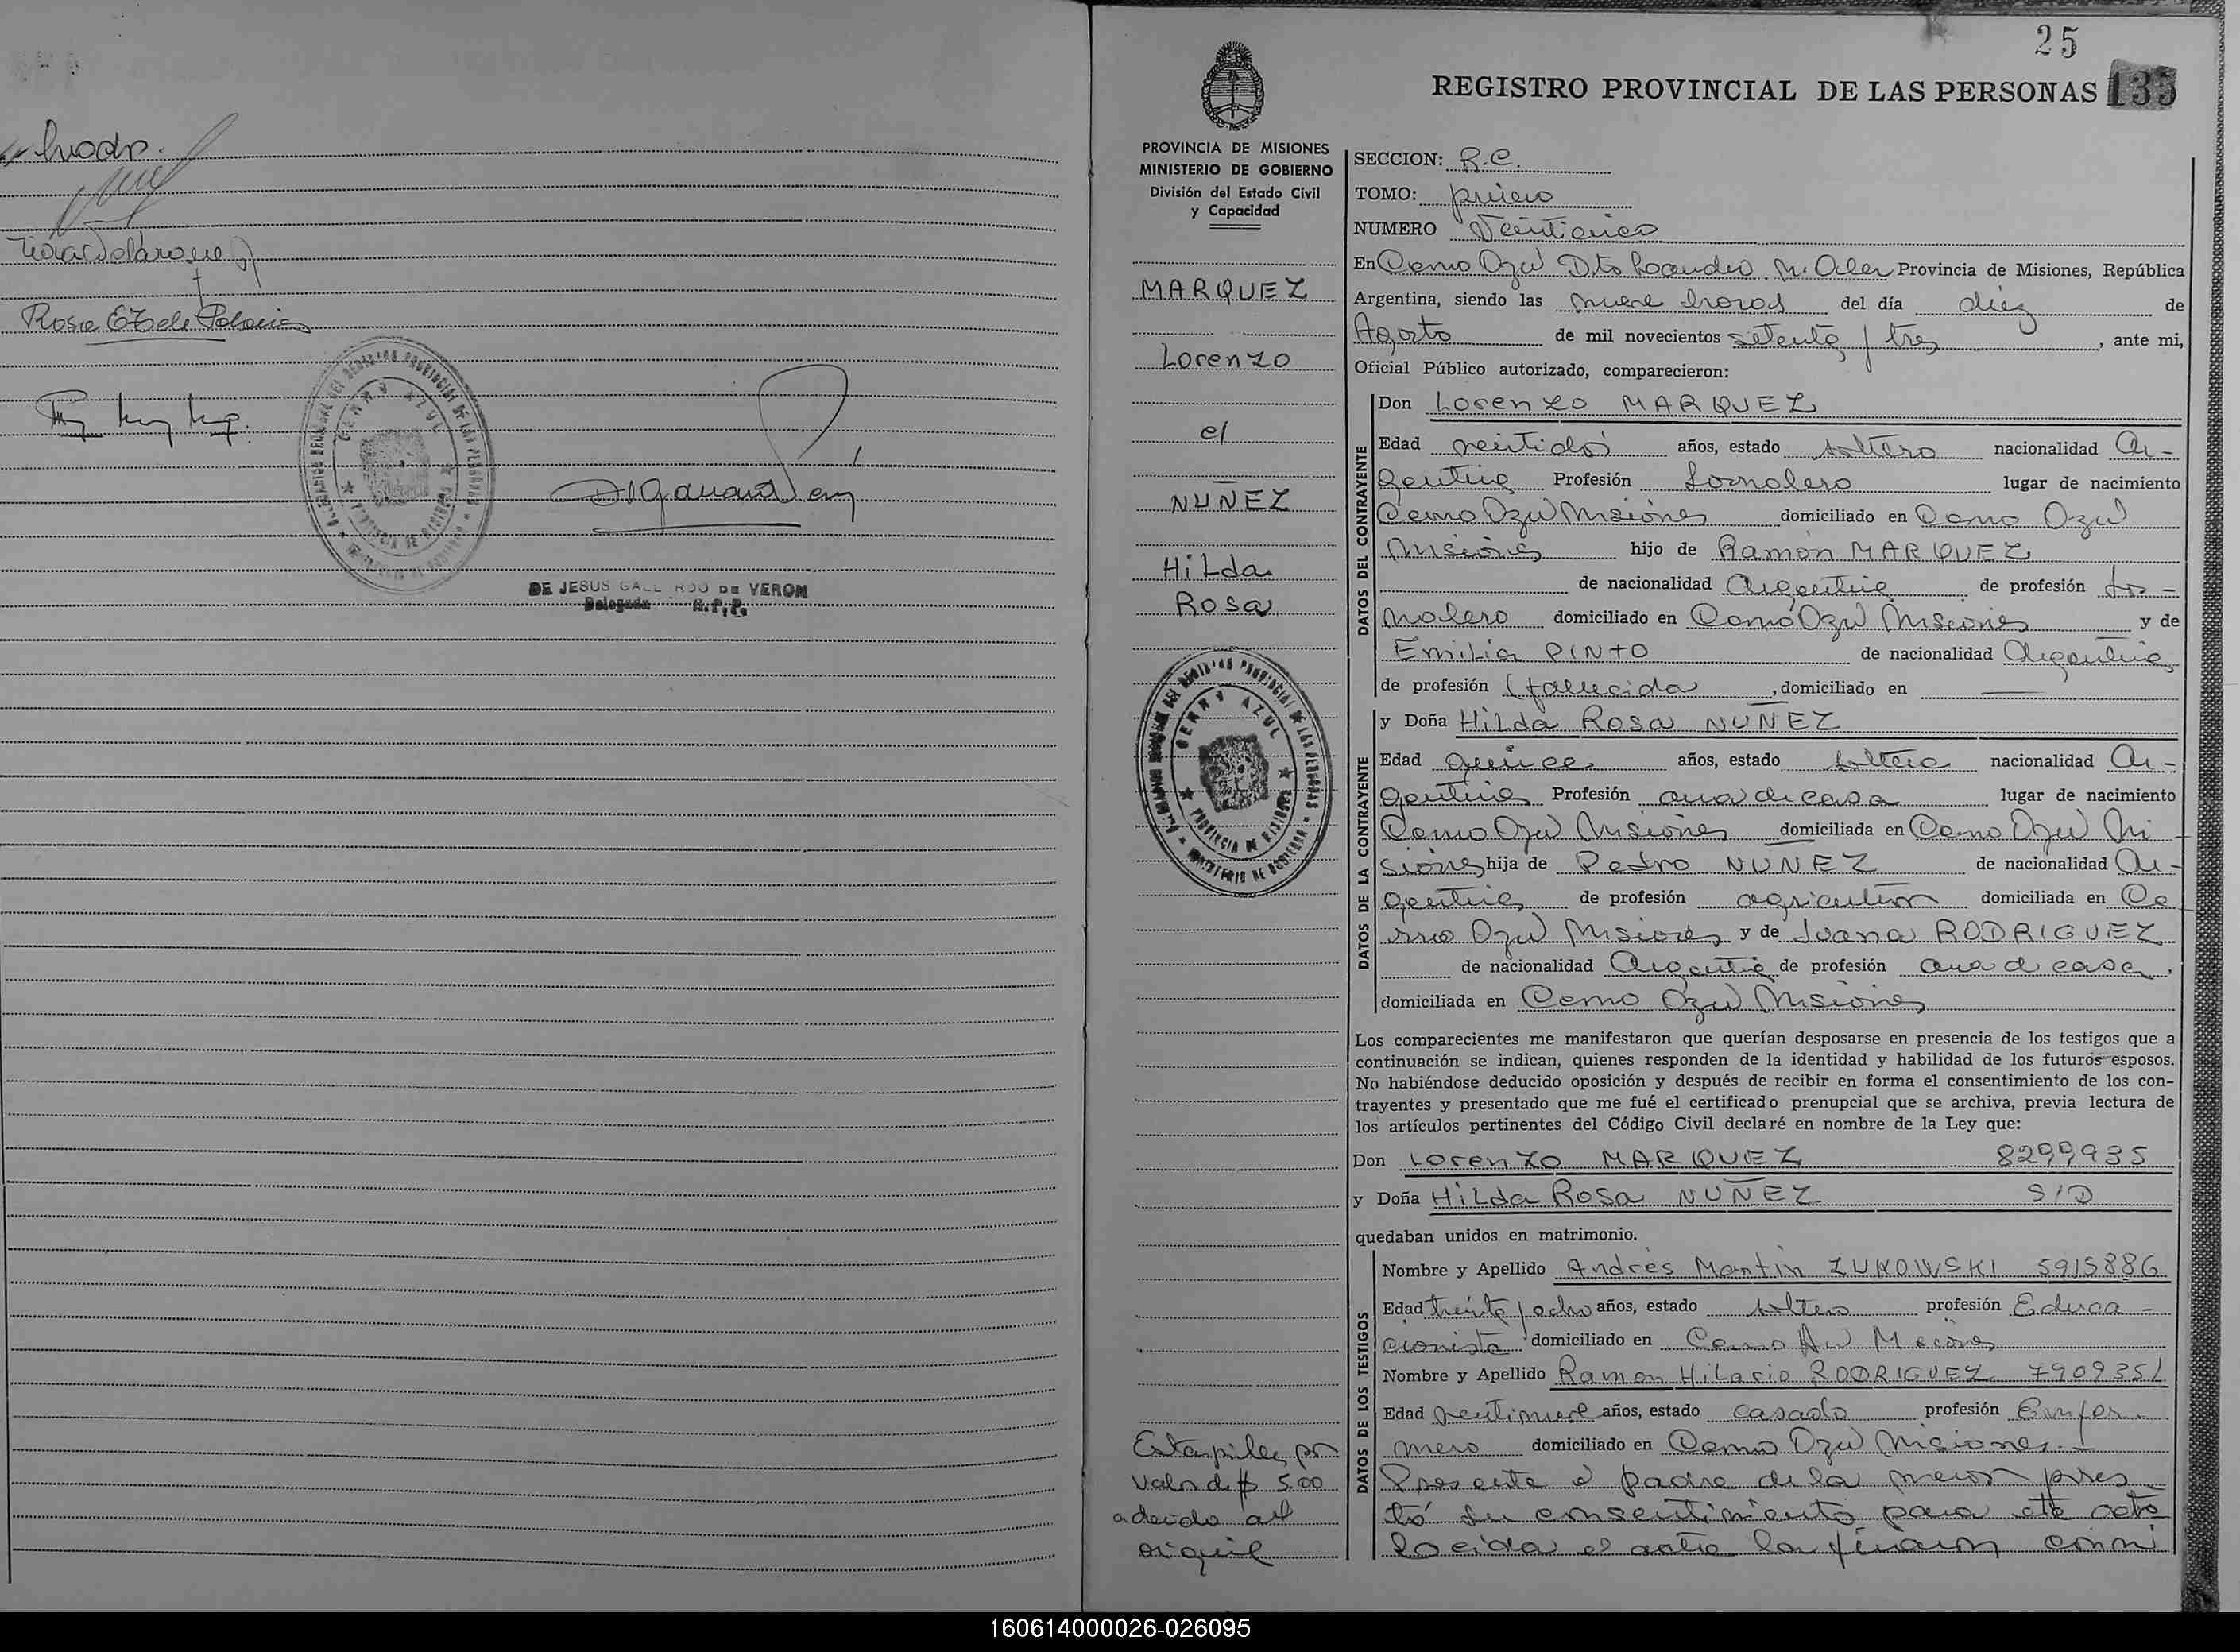 Rosa
DE JESUS GALL RDO DE VERON
Delegada R.P.P.
25
REGISTRO PROVINCIAL DE LAS PERSONAS 135
PROVINCIA DE MISIONES
MINISTERIO DE GOBIERNO
División del Estado Civil
y Capacidad
MARQUEZ
Lorenzo
el
NUÑEZ
Hilda
Rosa
CERRO AZUL
PROVINCIA DE MISIONES
Estampillas por
valor de $ 5.00
original
SECCION: R.C.
TOMO: primero
NUMERO Veinticinco
En Cerro Azul Dto Leandro N. Alem Provincia de Misiones, República
Argentina, siendo las nueve horas del día diez de
Agosto de mil novecientos setenta y tres, ante mi,
Oficial Público autorizado, comparecieron:
DATOS DEL CONTRAYENTE
Don Lorenzo MARQUEZ
Edad veintidós años, estado soltero nacionalidad Ar-
gentina Profesión Jornalero lugar de nacimiento
Cerro Azul Misiones domiciliado en Cerro Azul
Misiones hijo de Ramón MARQUEZ
de nacionalidad Argentina de profesión Jor-
nalero domiciliado en Cerro Azul Misiones y de
Emilia PINTO de nacionalidad Argentina
de profesión (fallecida, domiciliado en —
DATOS DE LA CONTRAYENTE
y Doña Hilda Rosa NUÑEZ
Edad quince años, estado soltera nacionalidad Ar-
gentina Profesión ama de casa lugar de nacimiento
Cerro Azul Misiones domiciliada en Cerro Azul Mi
siones hija de Pedro NUÑEZ de nacionalidad Ar-
gentina de profesión agricultor domiciliada en Ce
rro Azul Misiones y de Juana RODRIGUEZ
de nacionalidad Argentina de profesión ama de casa,
domiciliada en Cerro Azul Misiones
Los comparecientes me manifestaron que querían desposarse en presencia de los testigos que a
continuación se indican, quienes responden de la identidad y habilidad de los futuros esposos.
No habiéndose deducido oposición y después de recibir en forma el consentimiento de los con-
trayentes y presentado que me fué el certificado prenupcial que se archiva, previa lectura de
los artículos pertinentes del Código Civil declaré en nombre de la Ley que:
Don Lorenzo MARQUEZ 8299935
y Doña Hilda Rosa NUÑEZ S/D
quedaban unidos en matrimonio.
DATOS DE LOS TESTIGOS
Nombre y Apellido Andrés Martin ZUKOWSKI 5915886
Edad treinta y ocho años, estado soltero profesión Educa-
cionista domiciliado en Cerro Azul Misiones
Nombre y Apellido Ramon Hilario RODRIGUEZ 7909351
Edad veintinueve años, estado casado profesión Enfer-
mero domiciliado en Cerro Azul Misiones.
Presente el padre de la menor pres
tó su consentimiento para este acto
Leída el acta la firman conmi
160614000026-026095